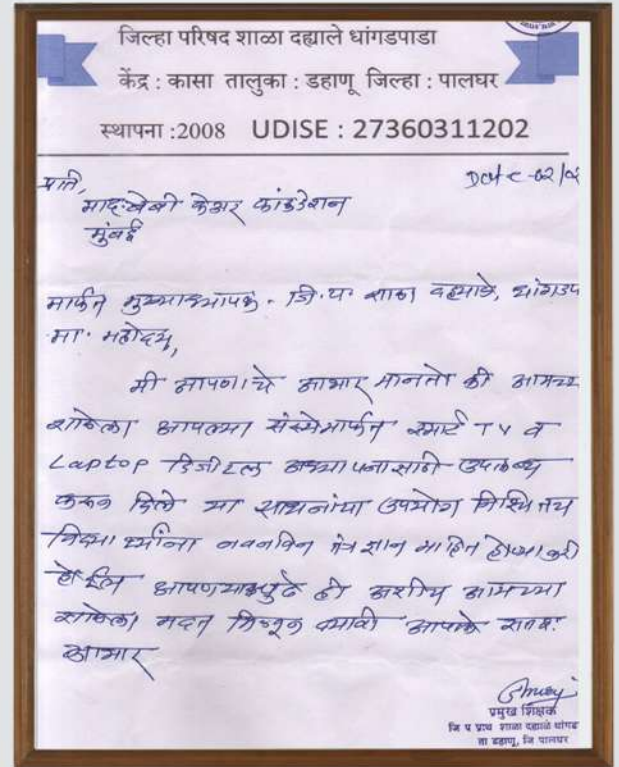 जिल्हा परिषद शाळा दह्याले धांगडपाडा
केंद्र : कासा तालुका : डहाणू जिल्हा : पालघर
स्थापना :2008 UDISE : 27360311202
प्रति, Date -02/0
मुंबई
मार्फत मुख्याध्यापक - जि. प. शाळा दह्याळे, धांगडप
मा. महोदय,
मी आपणाचे आभार मानतो की आमच्य
शाळेला आपल्या संस्थेमार्फत स्मार्ट TV व
Laptop डिजीटल अध्यापनासाठी उपलब्ध
करून दिले या साधनांचा उपयोग निश्चितच
विद्यार्थ्यांना नवनविन तंत्रज्ञान माहित होण्याकरी
होईल आपण यापुढे ही अशीच आमच्या
शाळेला मदत मिळून द्यावी आपले शतशः
आभार
प्रमुख शिक्षक
जि प प्राथ शाळा दह्याळे धांगड
ता डहाणू, जि पालघर